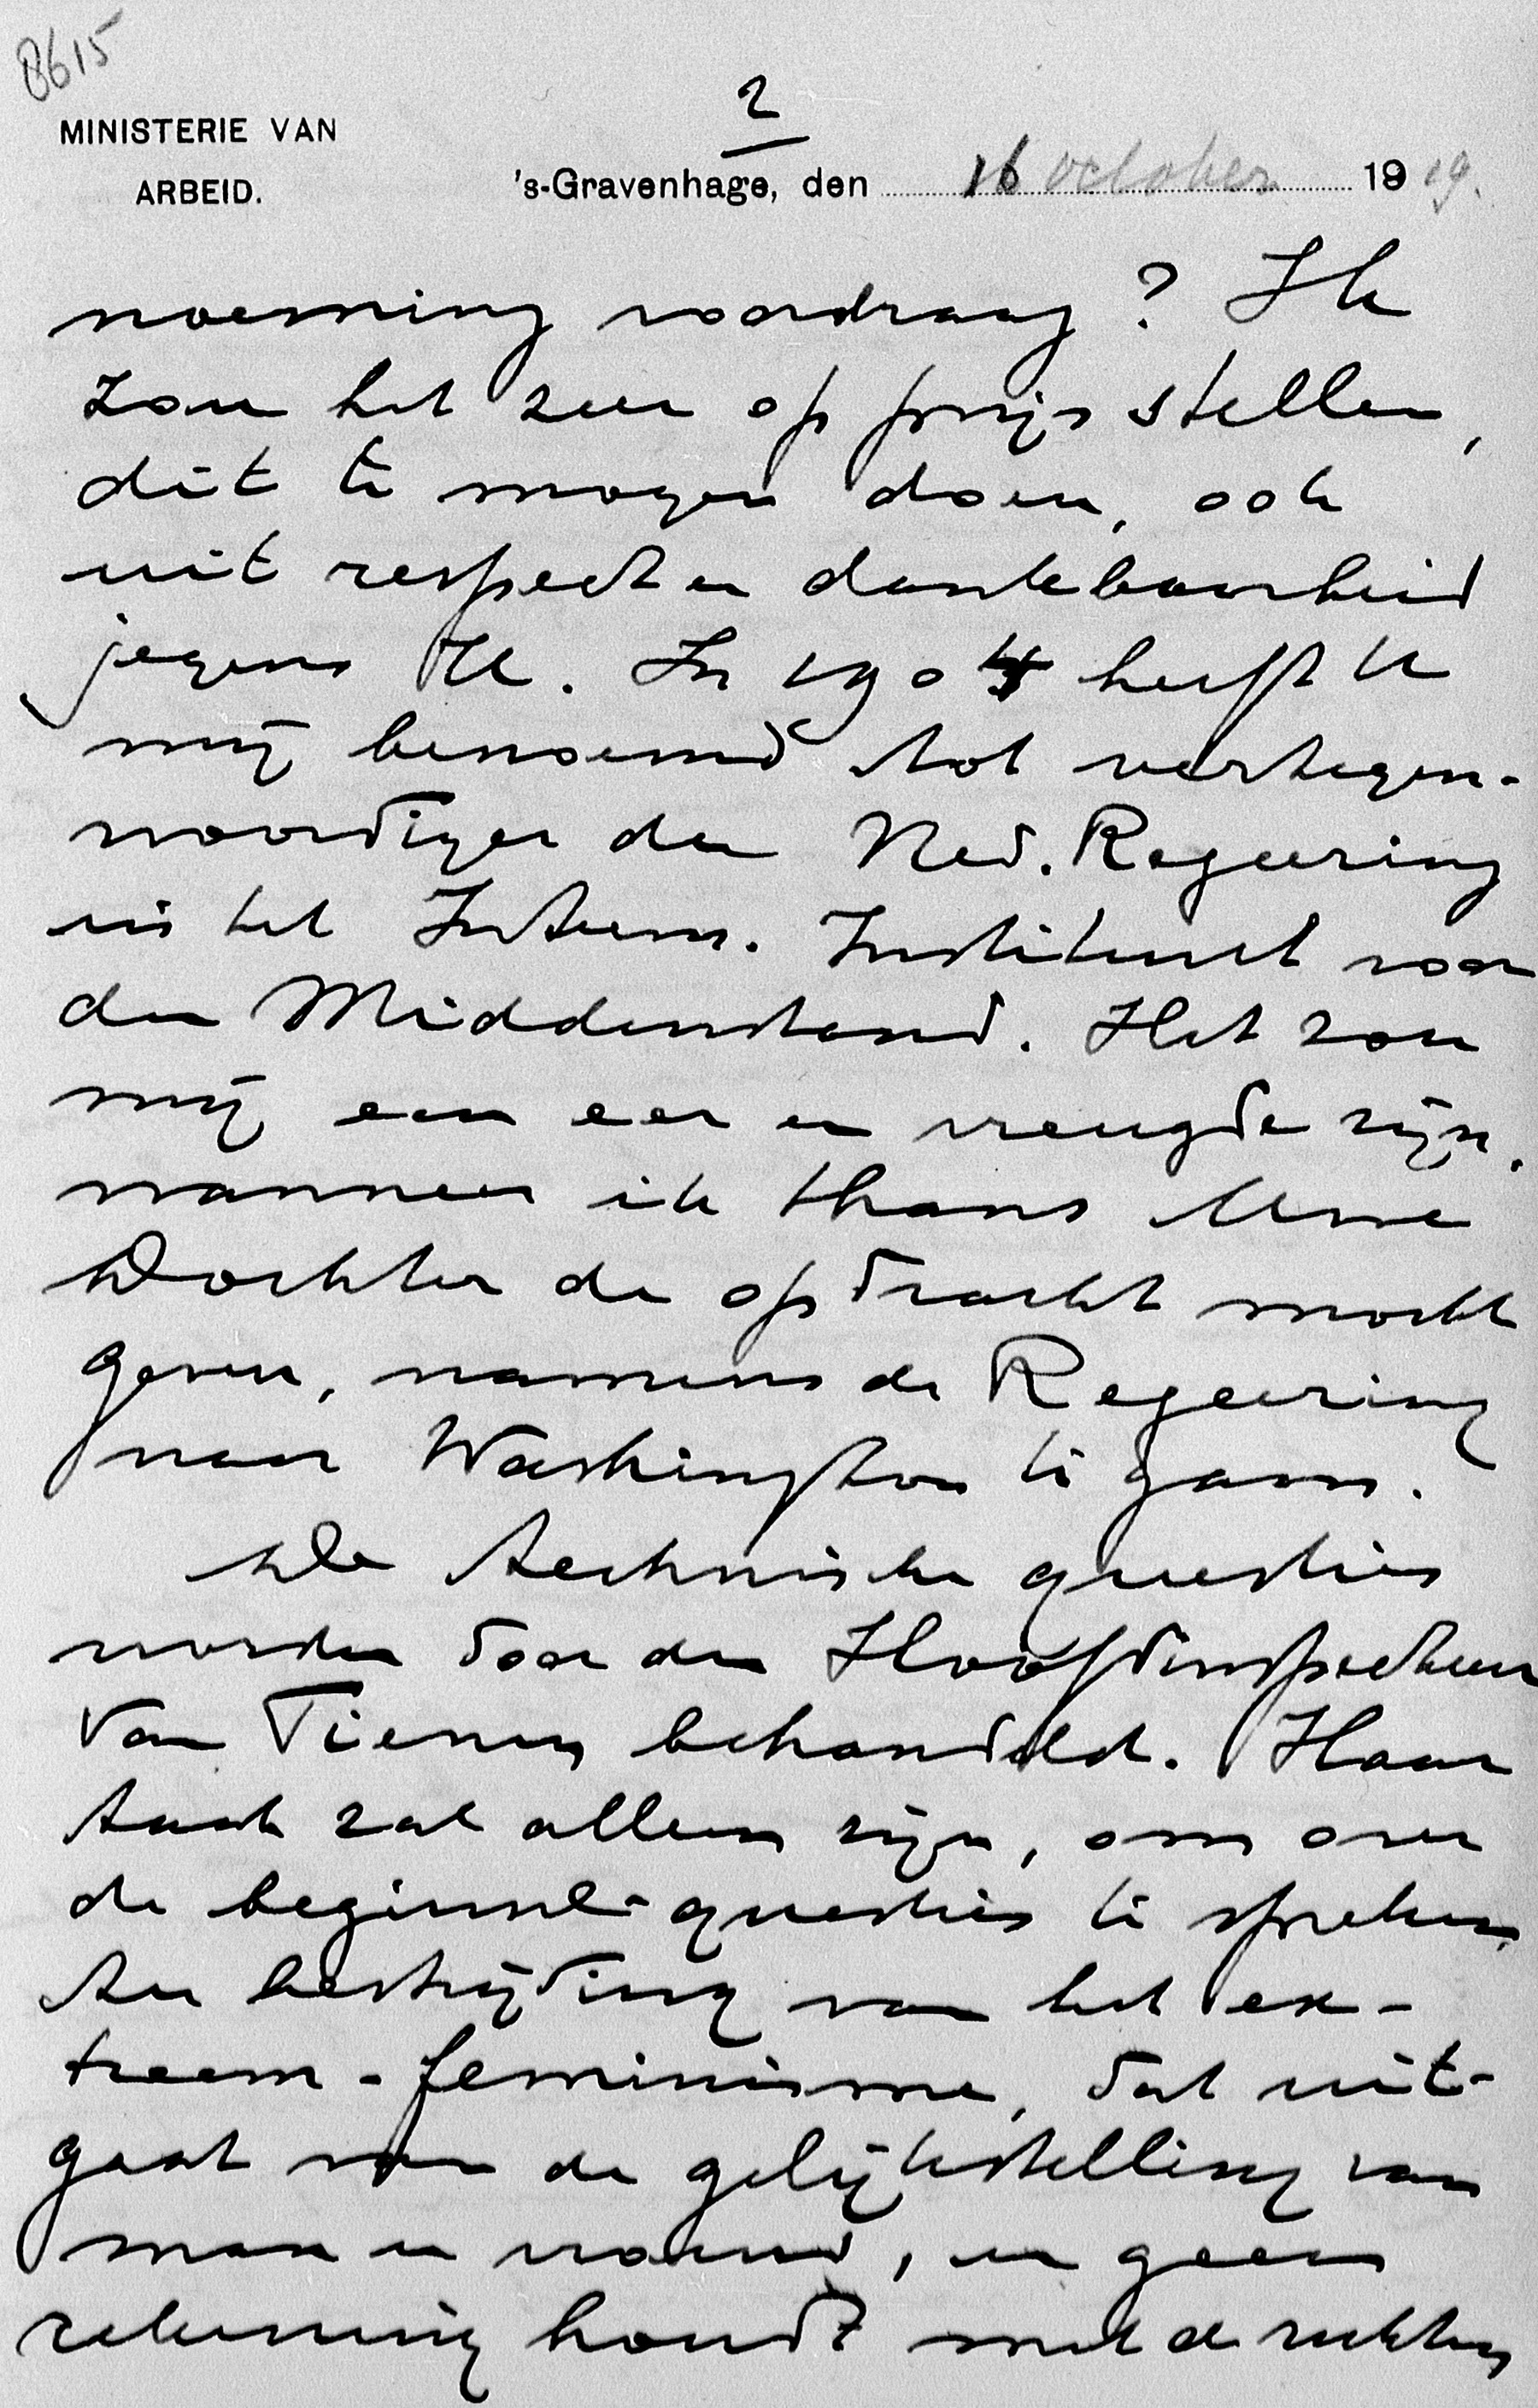 8615
2
MINISTERIE VAN
ARBEID.
's-Gravenhage, den 16 october 1919.
noeming voordraag? Ik
zou het zeer op prijs stellen,
dit te mogen doen, ook
uit respect en dankbaarheid
jegens U. In 1904 heeft U
mij benoemd tot vertegen-
woordiger der Ned. Regeering
in het Intern. Instituut voor
den Middenstand. Het zou
mij een eer en vreugde zijn,
wanneer ik thans Uwe
Dochter de opdracht mocht
geven, namens de Regeering
naar Washington te gaan.
De technische questies
worden door den Hoofdinspecteur
Van Tienen behandeld. Haar
taak zal alleen zijn, om over
de beginsel-questies te spreken,
ter bestrijding van het ex-
treem-feminisme, dat uit-
gaat van de gelijkstelling van
man en vrouw, en geen
rekening houdt met de rechten